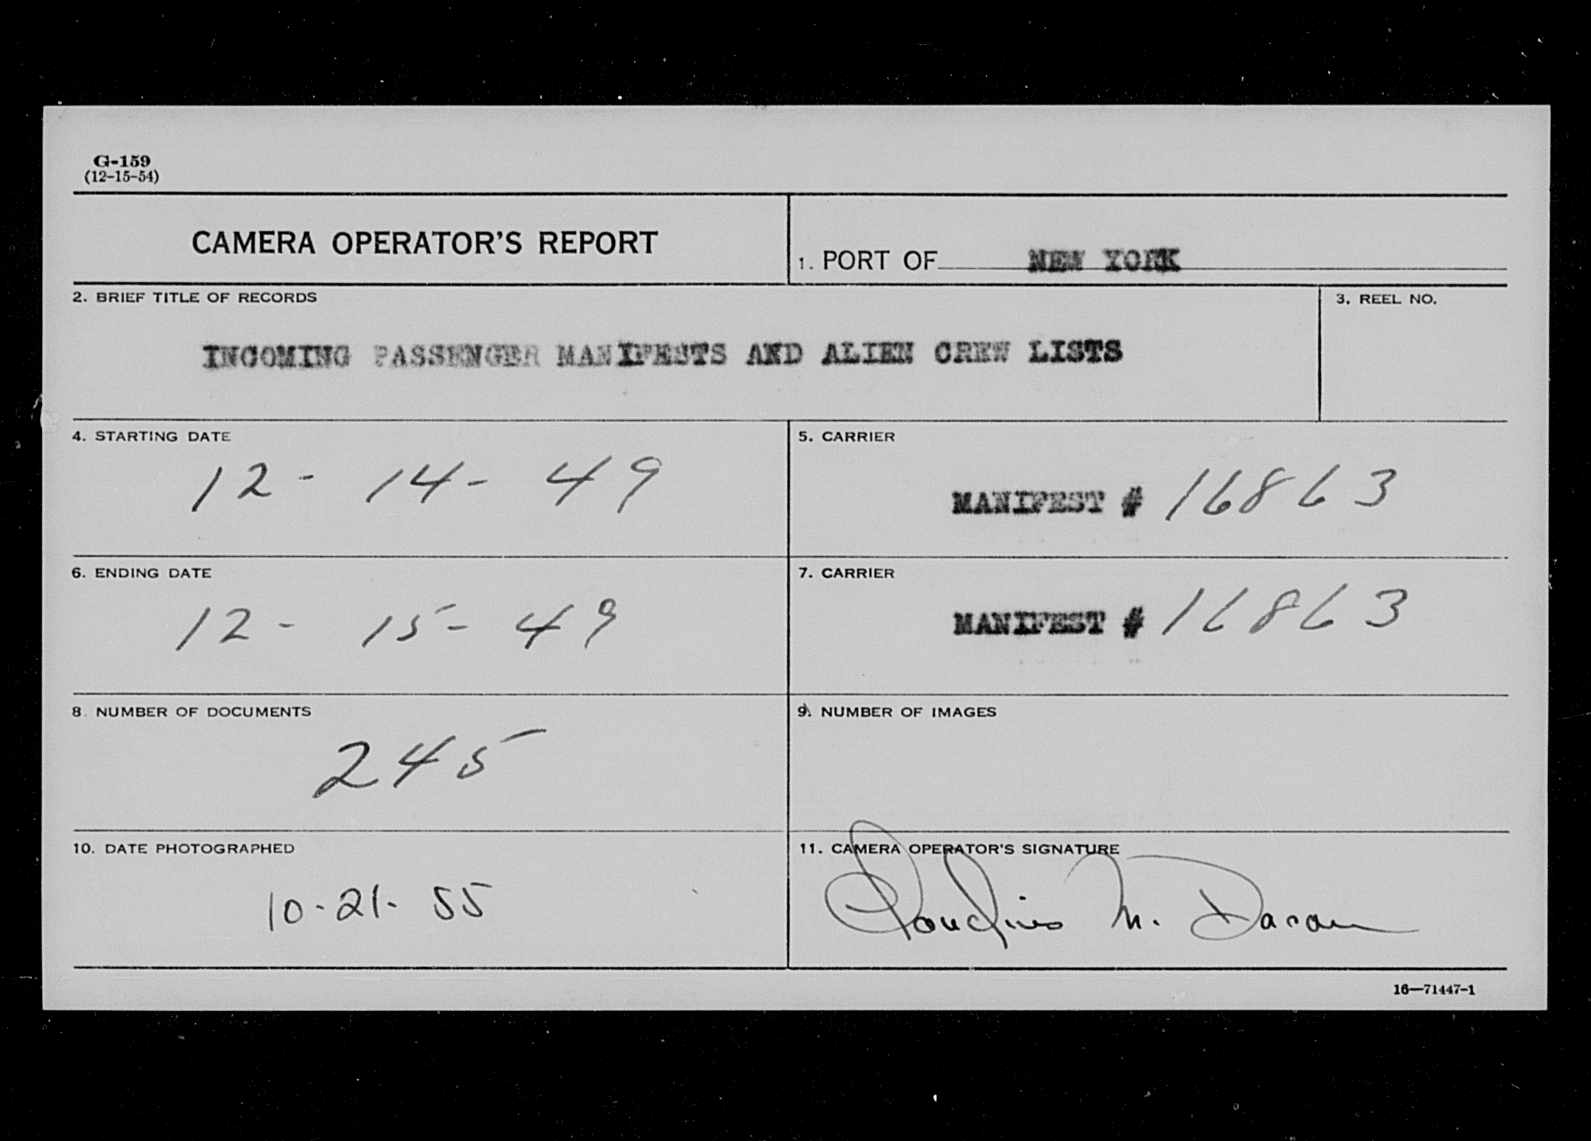 G-159
(12-15-54)
CAMERA OPERATOR'S REPORT
1. PORT OF NEW YORK
2. BRIEF TITLE OF RECORDS
3. REEL NO.
INCOMING PASSENGER MANIFESTS AND ALIEN CREW LISTS
4. STARTING DATE
12-14-49
5. CARRIER
MANIFEST # 16863
6. ENDING DATE
12-15-49
7. CARRIER
MANIFEST # 16863
8. NUMBER OF DOCUMENTS
245
9. NUMBER OF IMAGES
10. DATE PHOTOGRAPHED
10-21-55
11. CAMERA OPERATOR'S SIGNATURE
M.
16—71447-1